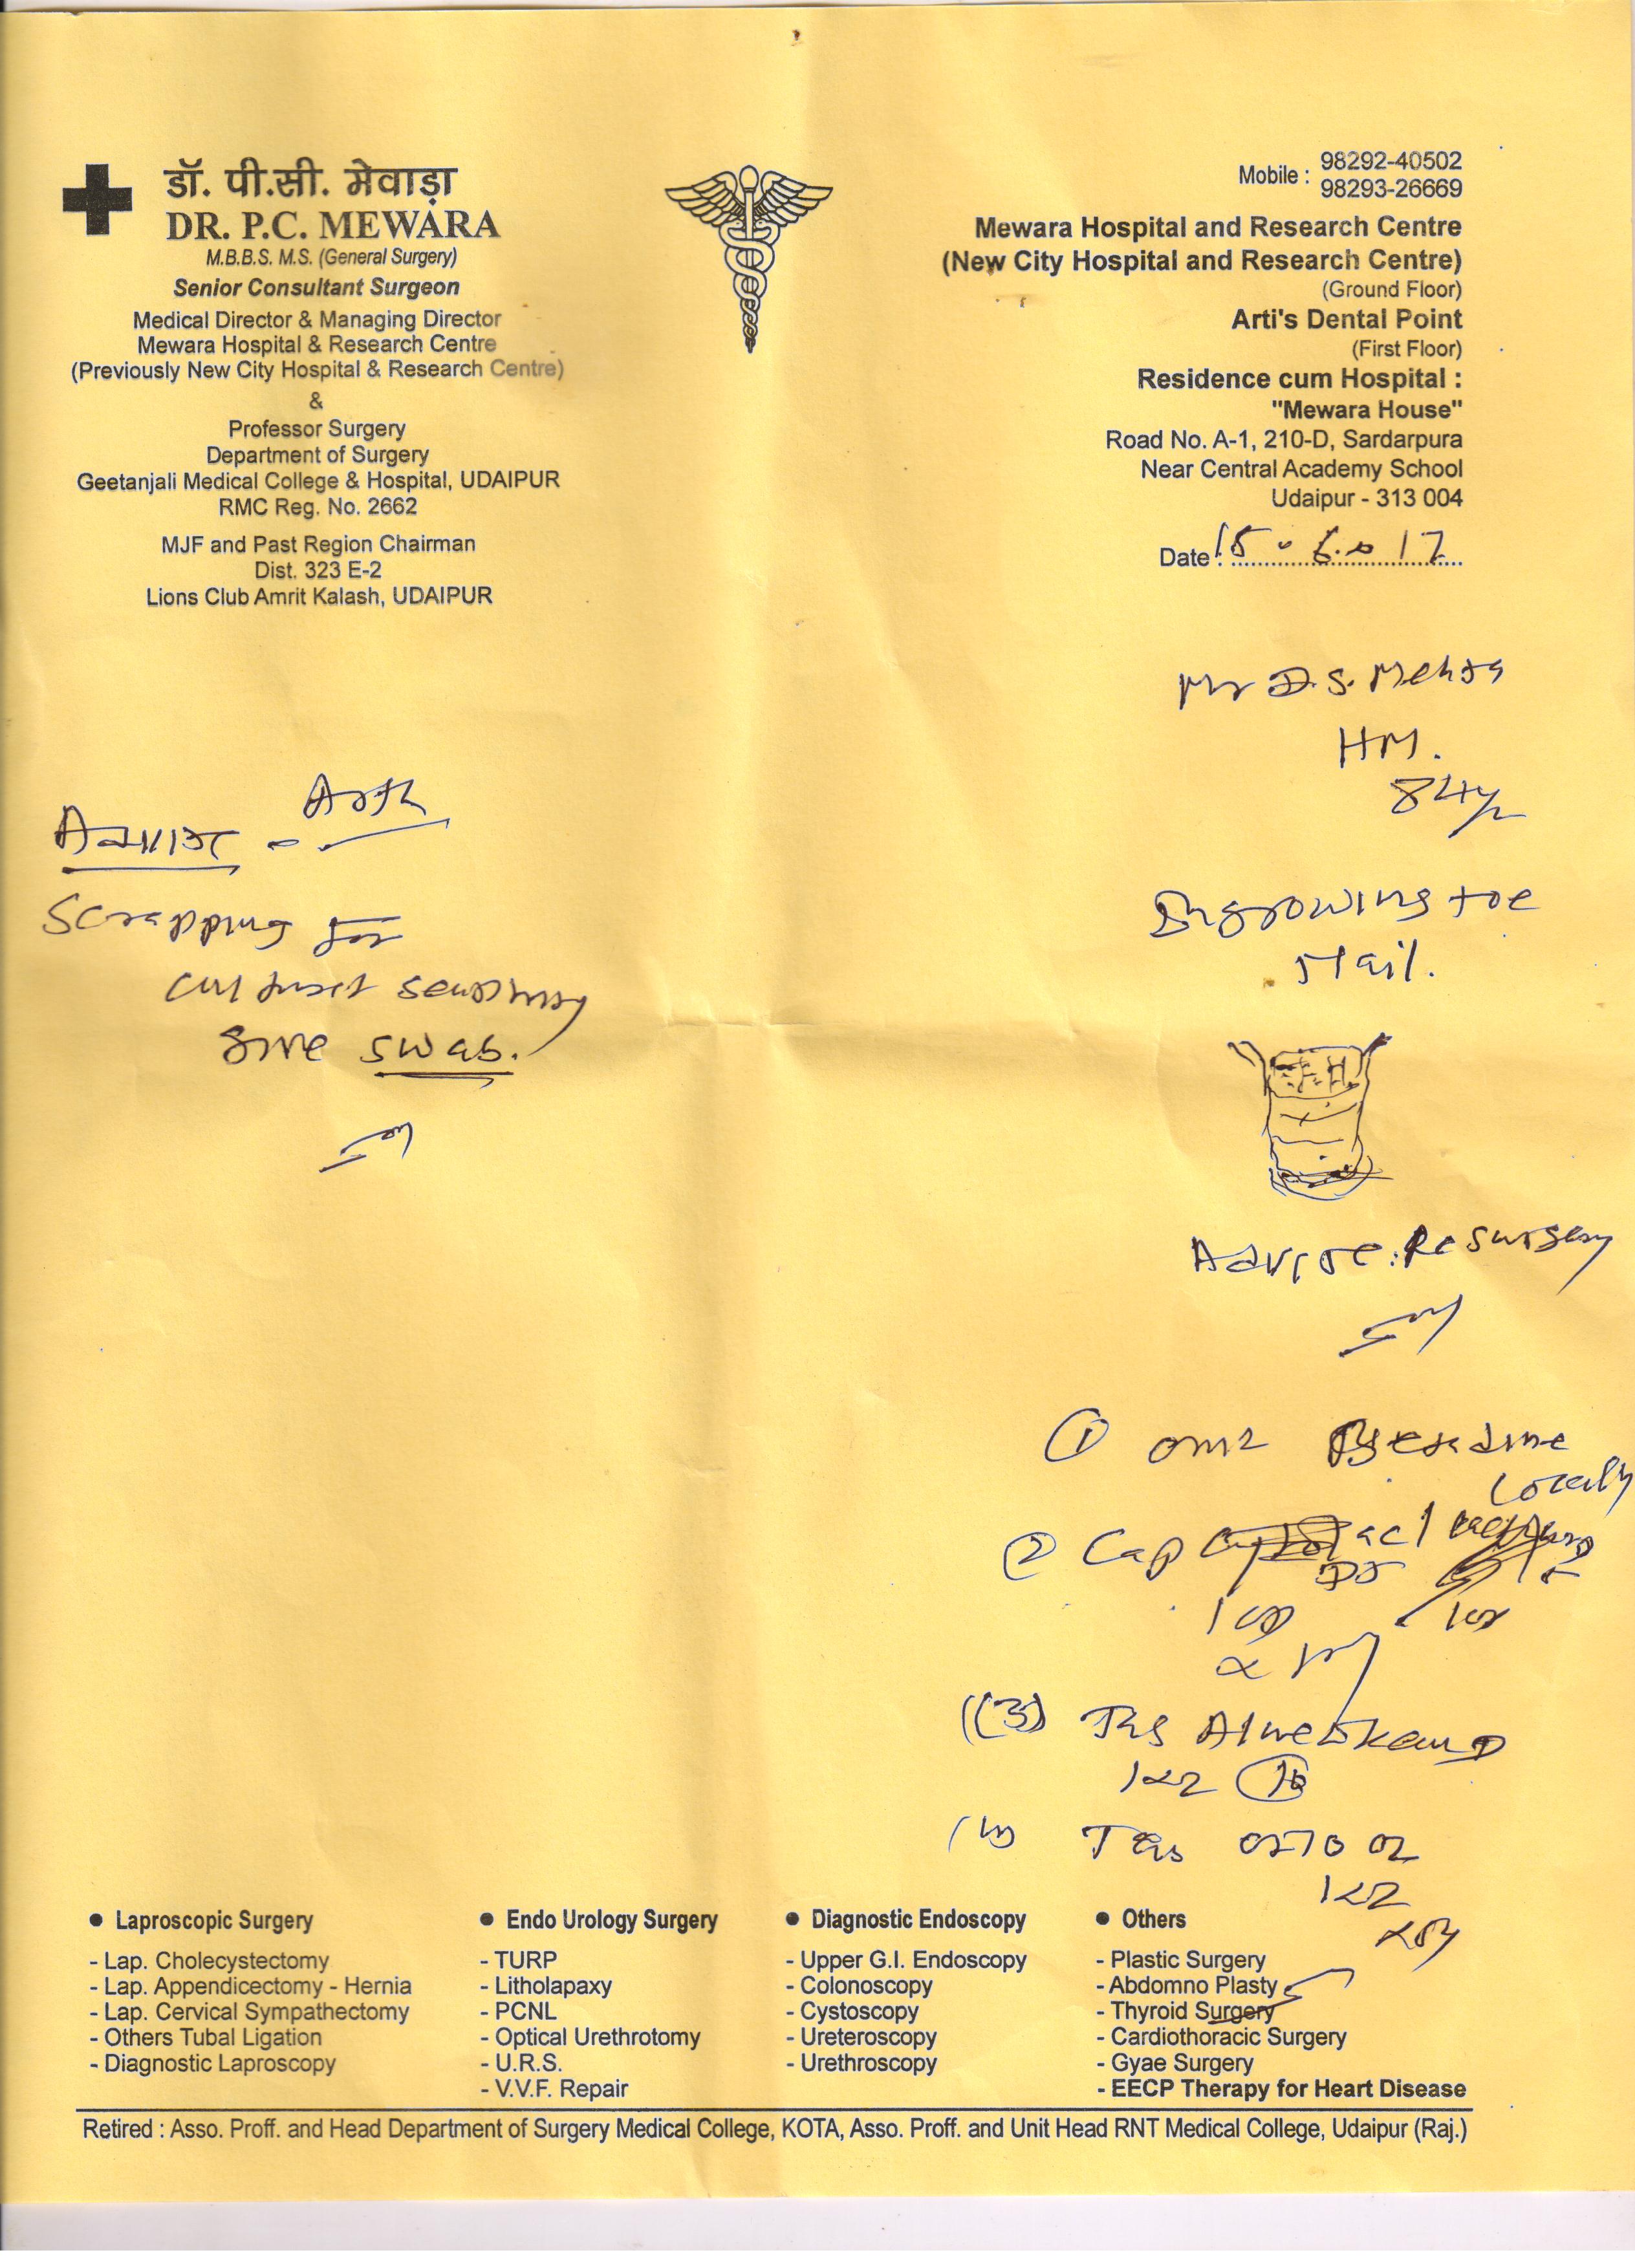 डॉ. पी.सी. मेवाड़ा
DR. P.C. MEWARA
M.B.B.S. M.S. (General Surgery)
Senior Consultant Surgeon
Medical Director & Managing Director
Mewara Hospital & Research Centre
(Previously New City Hospital & Research Centre)
&
Professor Surgery
Department of Surgery
Geetanjali Medical College & Hospital, UDAIPUR
RMC Reg. No. 2662
MJF and Past Region Chairman
Dist. 323 E-2
Lions Club Amrit Kalash, UDAIPUR
Mobile : 98292-40502
98293-26669
Mewara Hospital and Research Centre
(New City Hospital and Research Centre)
(Ground Floor)
Arti's Dental Point
(First Floor)
Residence cum Hospital :
"Mewara House"
Road No. A-1, 210-D, Sardarpura
Near Central Academy School
Udaipur - 313 004
Date : 15 . 6 . 17
Mr D.S. Mehta
HM.
84y
Ingrowing toe
Nail.
Advise : Re surgery
Scrapping for
swab.
① 
Locally
② Cap
(3)
Tab
1x2
● Laproscopic Surgery
- Lap. Cholecystectomy
- Lap. Appendicectomy - Hernia
- Lap. Cervical Sympathectomy
- Others Tubal Ligation
- Diagnostic Laproscopy
● Endo Urology Surgery
- TURP
- Litholapaxy
- PCNL
- Optical Urethrotomy
- U.R.S.
- V.V.F. Repair
● Diagnostic Endoscopy
- Upper G.I. Endoscopy
- Colonoscopy
- Cystoscopy
- Ureteroscopy
- Urethroscopy
● Others
- Plastic Surgery
- Abdomno Plasty
- Thyroid Surgery
- Cardiothoracic Surgery
- Gyae Surgery
- EECP Therapy for Heart Disease
Retired : Asso. Proff. and Head Department of Surgery Medical College, KOTA, Asso. Proff. and Unit Head RNT Medical College, Udaipur (Raj.)